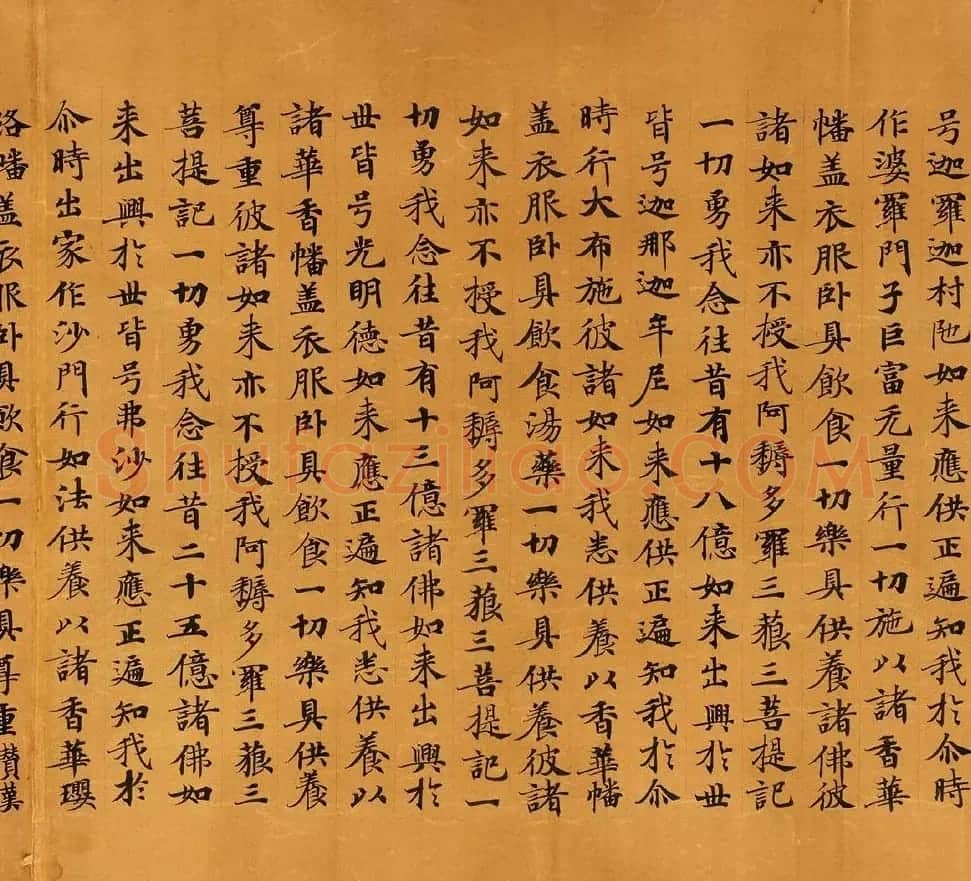 号迦羅迦村陁如来應供正遍知我於尒時
作婆羅門子巨富无量行一切施以諸香華
幡盖衣服卧具飲食一切樂具供養諸佛彼
諸如来亦不授我阿耨多羅三藐三菩提記
一切勇我念往昔有十八億如来出興於世
皆号迦那迦牟尼如来應供正遍知我於尒
時行大布施彼諸如来我悉供養以香華幡
盖衣服卧具飲食湯藥一切樂具供養彼諸
如来亦不授我阿耨多羅三藐三菩提記一
切勇我念往昔有十三億諸佛如来出興於
世皆号光明德如来應正遍知我悉供養以
諸華香幡盖衣服卧具飲食一切樂具供養
尊重彼諸如来亦不授我阿耨多羅三藐三
菩提記一切勇我念往昔二十五億諸佛如
来出興於世皆号弗沙如来應正遍知我於
尒時出家作沙門行如法供養以諸香華瓔
珞幡盖衣服卧具飲食一切樂具尊重讃嘆
Shufaziliao.COM